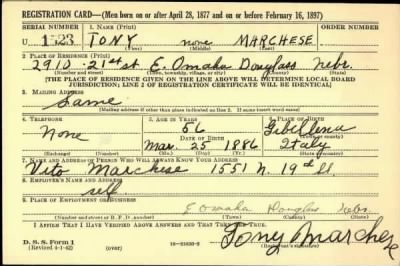 REGISTRATION CARD—(Men born on or after April 28, 1877 and on or before February 16, 1897)
SERIAL NUMBER 1. NAME (Print) ORDER NUMBER
U 1523 TONY none MARCHESE
(First) (Middle) (Last)
2. PLACE OF RESIDENCE (Print)
2910 - 21st st E. Omaha Douglass Nebr.
(Number and street) (Town, township, village, or city) (County) (State)
[THE PLACE OF RESIDENCE GIVEN ON THE LINE ABOVE WILL DETERMINE LOCAL BOARD
JURISDICTION; LINE 2 OF REGISTRATION CERTIFICATE WILL BE IDENTICAL]
3. MAILING ADDRESS
Same
[Mailing address if other than place indicated on line 2. If same insert word same]
4. TELEPHONE 5. AGE IN YEARS 6. PLACE OF BIRTH
None 56 Gibellena
DATE OF BIRTH
Mar. 25 1886 Italy
(Exchange) (Number) (Mo.) (Day) (Yr.) (State or country)
7. NAME AND ADDRESS OF PERSON WHO WILL ALWAYS KNOW YOUR ADDRESS
Vito Marchese 1551 N. 19th St.
8. EMPLOYER'S NAME AND ADDRESS
self
9. PLACE OF EMPLOYMENT OR BUSINESS
E Omaha Douglas Nebr.
(Number and street or R. F. D. number) (Town) (County) (State)
I AFFIRM THAT I HAVE VERIFIED ABOVE ANSWERS AND THAT THEY ARE TRUE.
D. S. S. Form 1
(Revised 4-1-42) (over) Tony Marchese
(Registrant's signature)